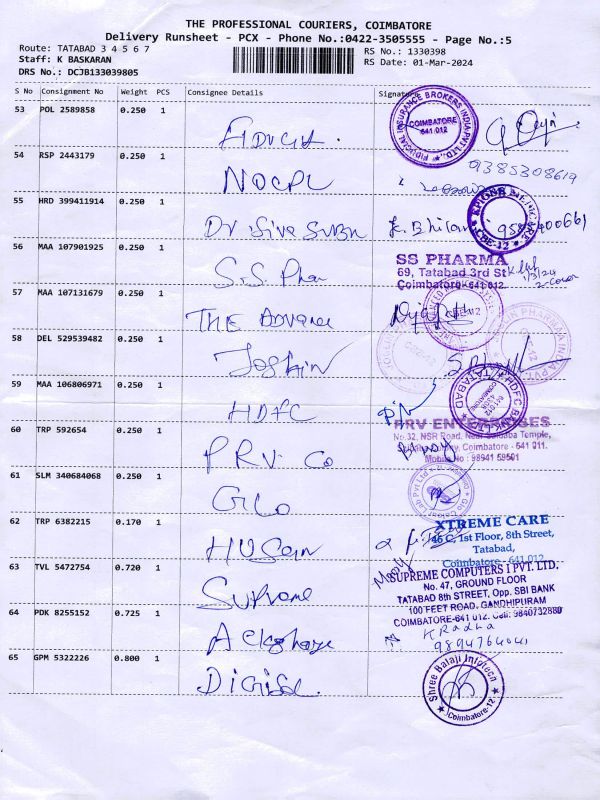 THE PROFESSIONAL COURIERS, COIMBATORE
Delivery Runsheet - PCX - Phone No.:0422-3505555 - Page No.:5
Route: TATABAD 3 4 5 6 7
RS No.: 1330398
Staff: K BASKARAN
RS Date: 01-Mar-2024
DRS No.: DCJB133039805
S No Consignment No Weight PCS Consignee Details Signature
53 POL 2589858 0.250 1
FIDUCIAL INSURANCE BROKERS INDIA PVT LTD.
COIMBATORE
641 012
54 RSP 2443179 0.250 1
NOCPL
9385308619
55 HRD 399411914 0.250 1
Dr Siva Subn
CBE-12
56 MAA 107901925 0.250 1
S.S. Phar
SS PHARMA
69, Tatabad 3rd St
Coimbatore-641 012.
1/3/24
57 MAA 107131679 0.250 1
THE Advance
58 DEL 529539482 0.250 1
Joshin
59 MAA 106806971 0.250 1
HDFC
HDFC BANK LTD
TATABAD
60 TRP 592654 0.250 1
PRV Co
PRV ENTERPRISES
No.32, NSR Road, Near Saibaba Temple,
Coimbatore - 641 011.
Mobile No : 98941 59501
61 SLM 340684068 0.250 1
Glo
62 TRP 6382215 0.170 1
Husain
XTREME CARE
1st Floor, 8th Street,
Tatabad,
Coimbatore-641 012
63 TVL 5472754 0.720 1
Supreme
SUPREME COMPUTERS I PVT. LTD.
No. 47, GROUND FLOOR
TATABAD 8th STREET, Opp. SBI BANK
100 FEET ROAD, GANDHIPURAM
COIMBATORE-641 012. Cell: 9840732880
64 PDK 8255152 0.725 1
K Radha
9894764041
65 GPM 5322226 0.800 1
Shree Balaji Infotech
Coimbatore-12